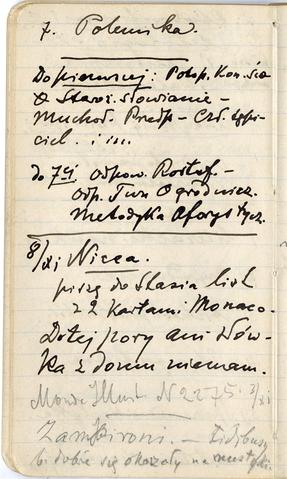 7. Polemika.
Do pierwszej: Potop. Kon. Św.
Staroż. Słowianie –
Muchoł. Przedp – Czł. typi-
ciel. i in.
do 7ej odpow. Rostaf. –
odp. Tow Ogrodnicz.
Metodyka Aforystycz.
8/XI Nicea.
piszę do Stasia list
z 2 kartami Monaco.
Dotej pory ani słów-
ka z domu niemam.
Monde Illust. N 2275. 7/XI
Zampironi. –
b. dobre się okazały na